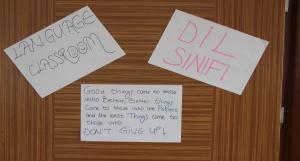 LANGUAGE
CLASSROOM
DİL
SINIFI
Good things come to those
who Believe, Better things
Come to those who are Patient
and the best Things come to
those who
DON'T GIVE UP!